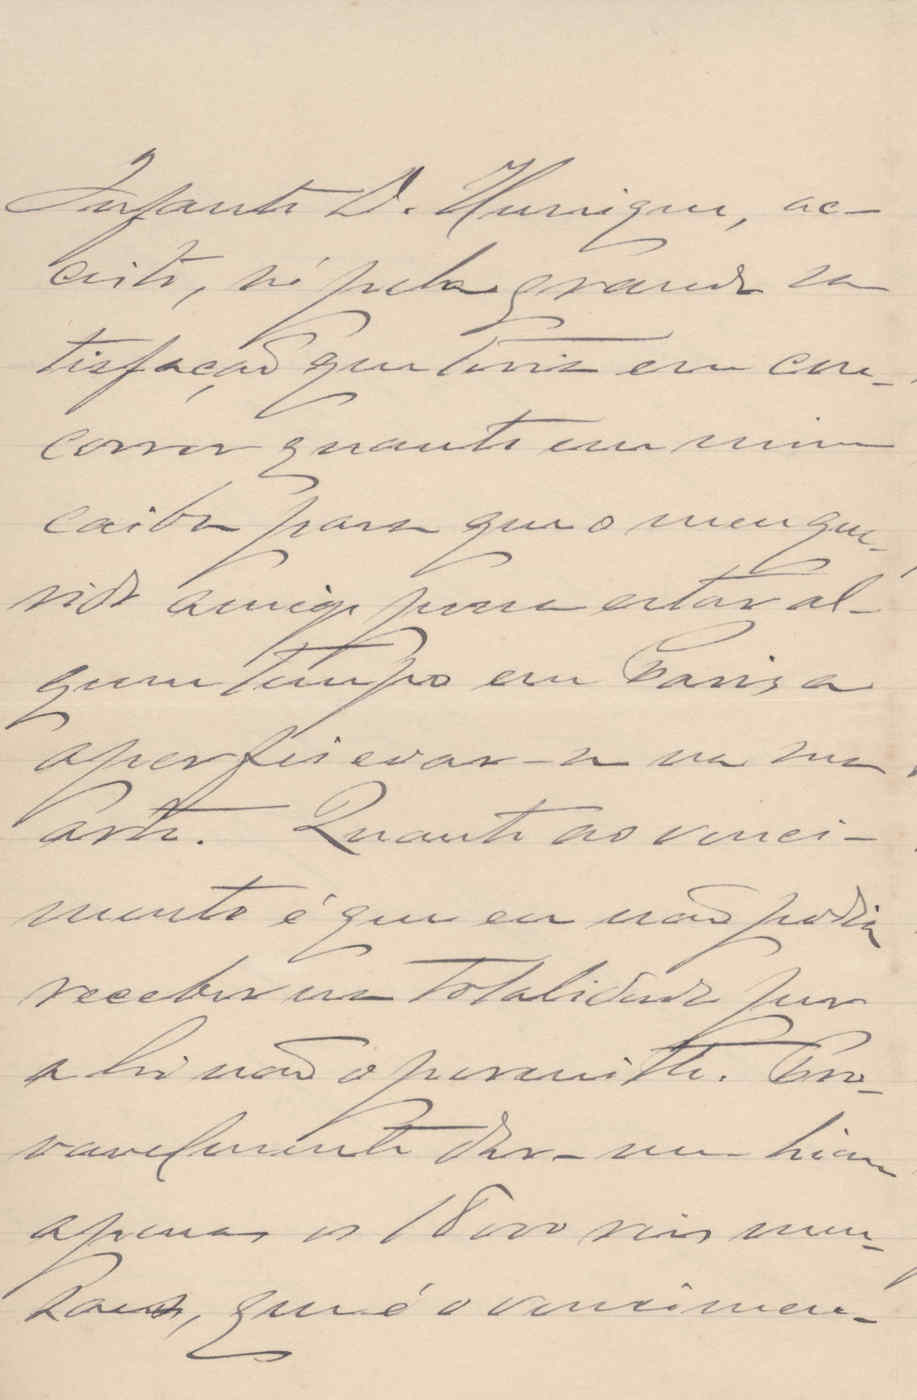 Infante D. Henrique, ac-
ceito, só pela grande sa
tisfação que teria em con-
correr quanto em mim
caiba para que o meu que-
rido amigo possa estar al-
gum tempo em Pariz a
aperfeiçoar-se na sua
arte. Quanto ao venci-
mento é que eu não podia
receber na totalidade por
a lei não o permittir. Pro-
vavelmente dar-me-hiam
apenas os 18000 reis men-
saes, que é o vencimen-